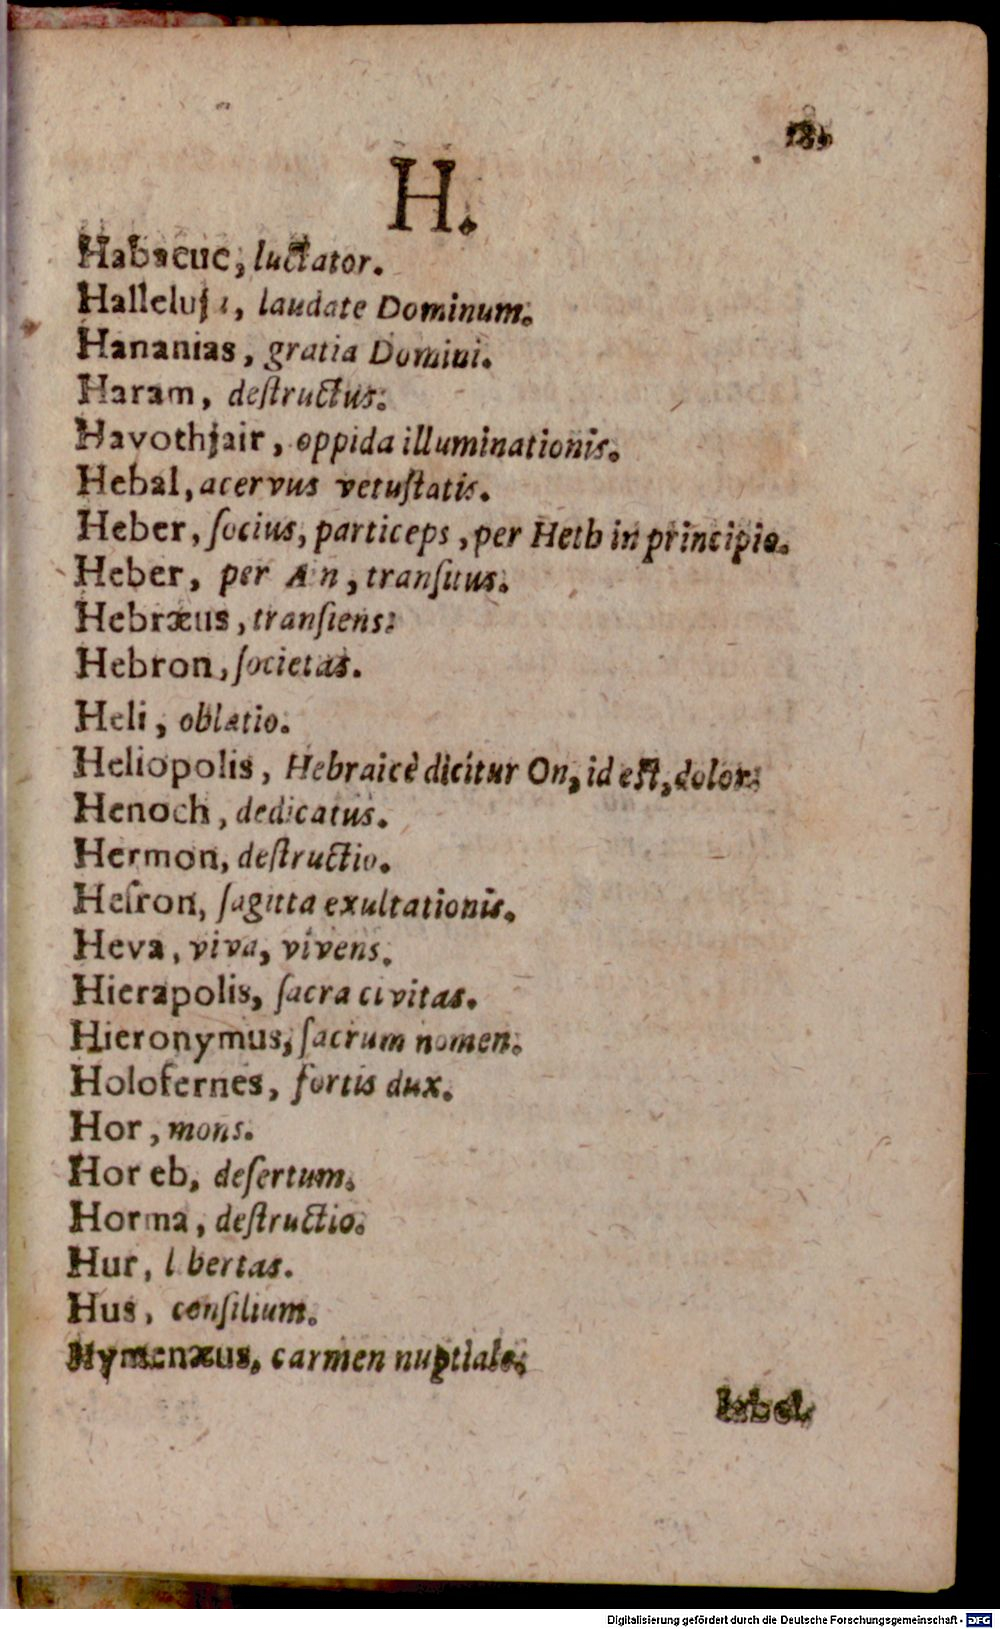 H.
Habacuc, luctator.
Halleluja, laudate Dominum.
Hananias, gratia Domini.
Haram, deſtructus.
Havothjair, oppida illuminationis.
Hebal, acervus vetuſtatis.
Heber, ſocius, particeps, per Heth in principio.
Heber, per Ain, tranſitus.
Hebræus, tranſiens.
Hebron, ſocietas.
Heli, oblatio.
Heliopolis, Hebraicè dicitur On, id eſt, dolor.
Henoch, dedicatus.
Hermon, deſtructio.
Heſron, ſagitta exultationis.
Heva, viva, vivens.
Hierapolis, ſacra civitas.
Hieronymus, ſacrum nomen.
Holofernes, fortis dux.
Hor, mons.
Horeb, deſertum.
Horma, deſtructio.
Hur, libertas.
Hus, conſilium.
Hymenæus, carmen nuptiale.
Digitalisierung gefördert durch die Deutsche Forschungsgemeinschaft - DFG